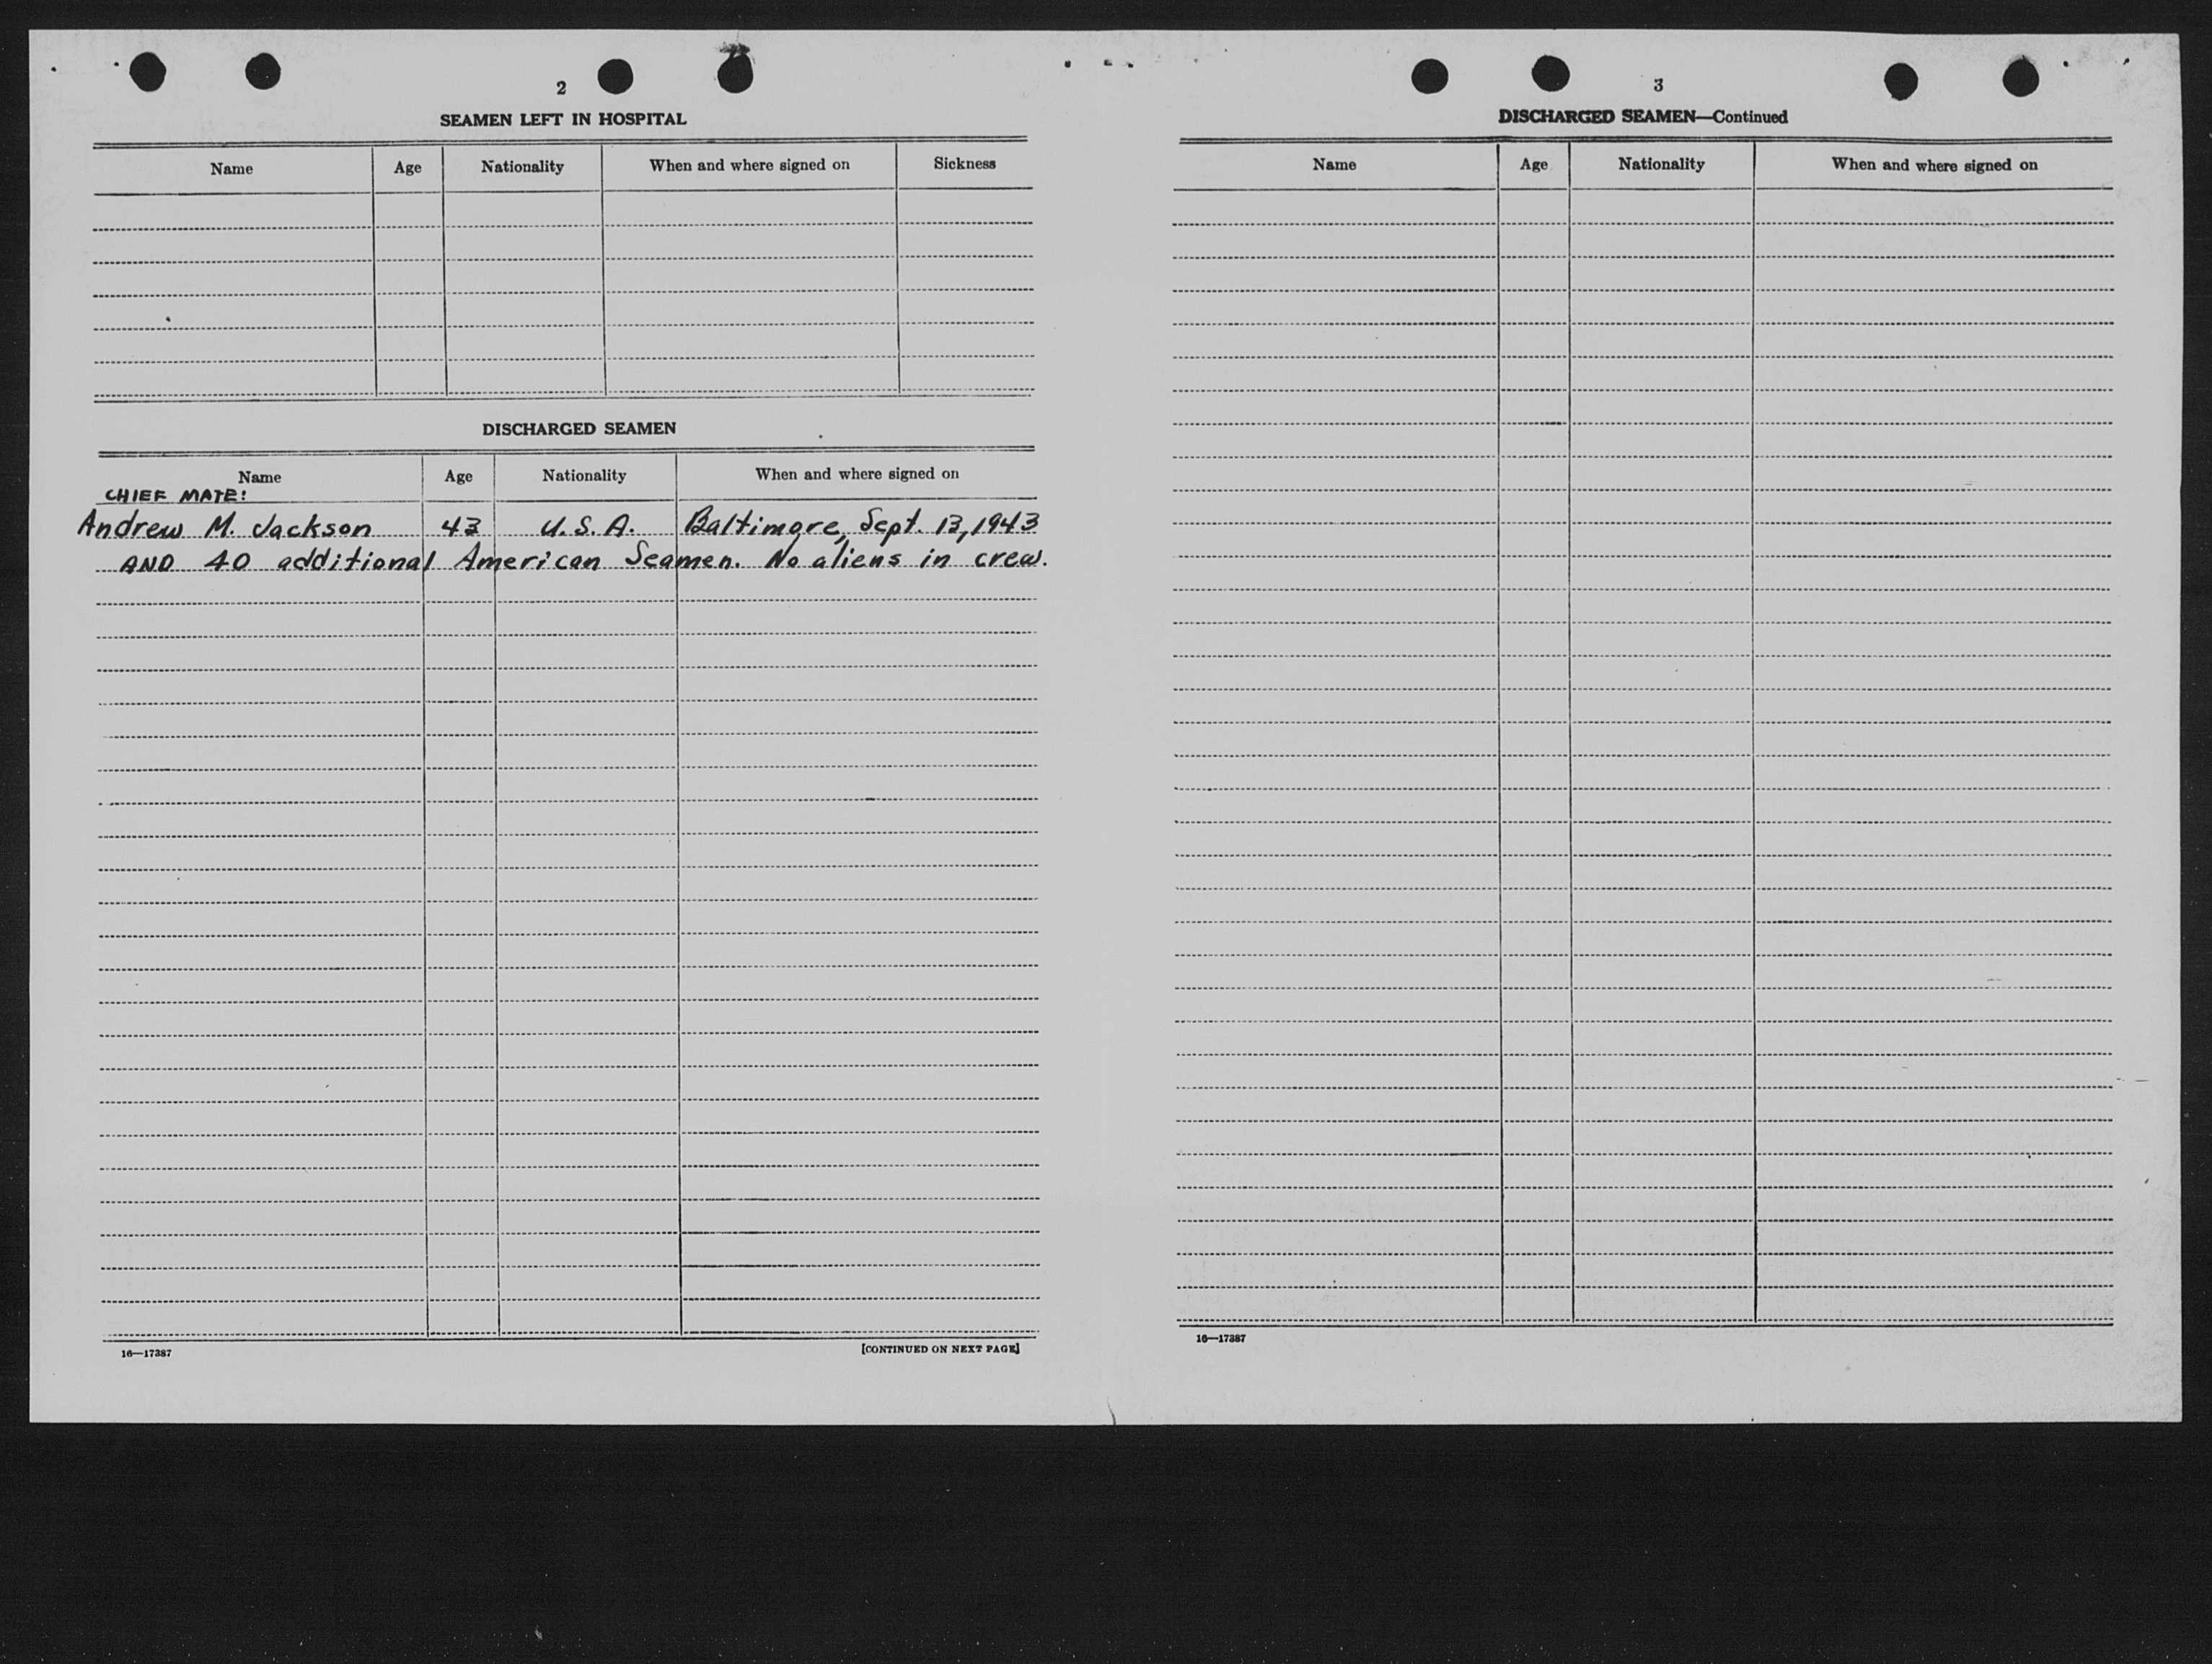 2
SEAMEN LEFT IN HOSPITAL
Name Age Nationality When and where signed on Sickness
DISCHARGED SEAMEN
Name Age Nationality When and where signed on
CHIEF MATE:
Andrew M. Jackson 43 U.S.A. Baltimore, Sept. 13, 1943
AND 40 additional American Seamen. No aliens in crew.
16—17387 [CONTINUED ON NEXT PAGE]
3
DISCHARGED SEAMEN—Continued
Name Age Nationality When and where signed on
16—17387